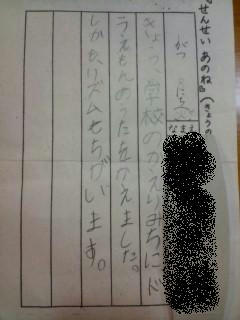 せんせい あのね。(きょうの
がつ にち
なまえ
きょう、学校のかえりみちにド
うえもんのうたをかえました。
しかも、リズムもちがいます。